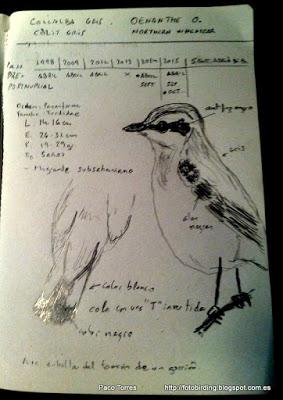 COLLALBA GRIS. OENANTHE O.
CÒLIT GRIS NORTHERN WHEATEAR
1998 2009 2012 2013 2015
PRE- ABRIL ABRIL ABRIL X ABRIL ABRIL
POSTNUPCIAL SEPT SEP
OCT
Orden: Paseriforme
Familia: Turdidae
L: 14-16 cm
E: 26-32 cm
P: 19-29 g
5 años
- Migrante subsahariano
antifaz negro
gris
alas negras
Color blanco
cola con una "T" invertida
color negro
Paco Torres http://fotobirding.blogspot.com.es